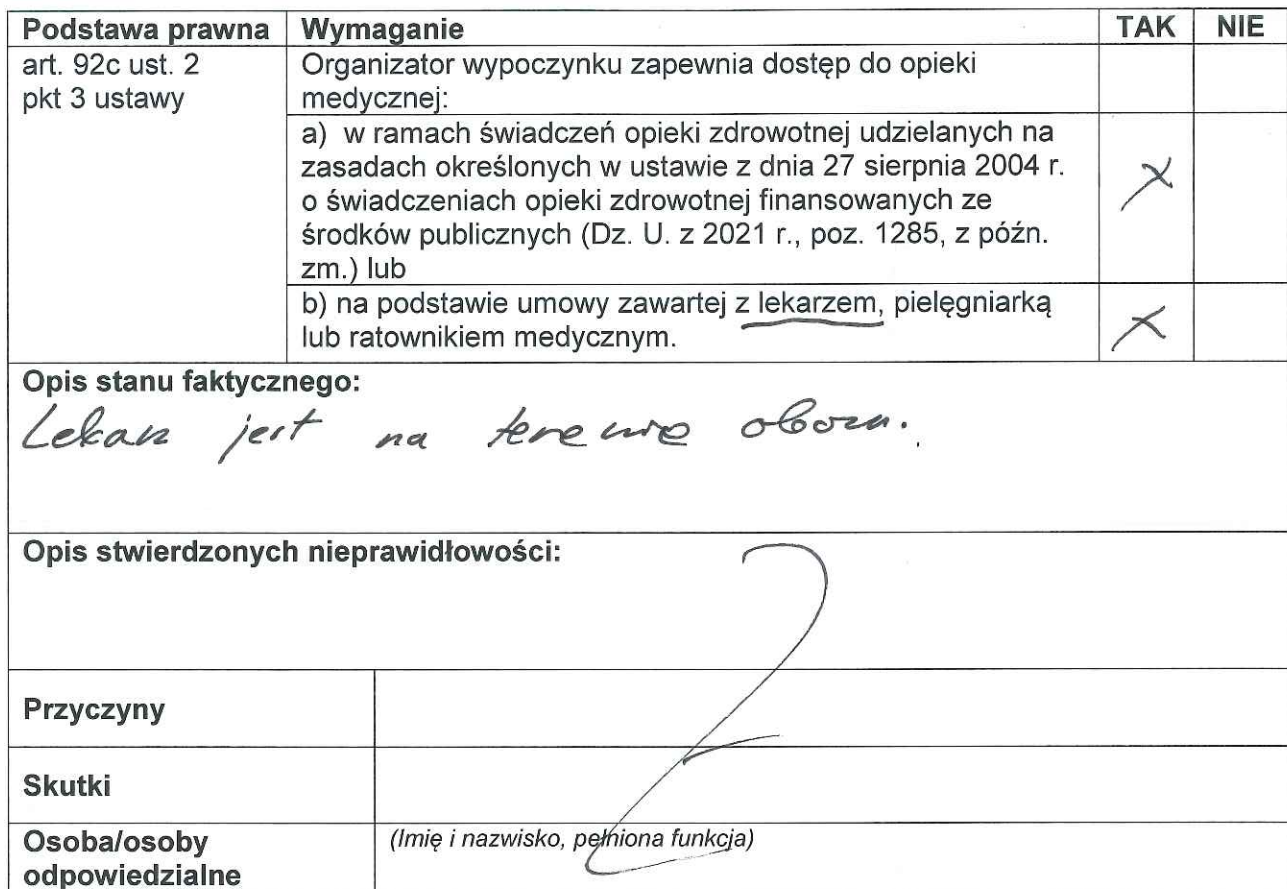 Podstawa prawna Wymaganie TAK NIE
art. 92c ust. 2
pkt 3 ustawy
Organizator wypoczynku zapewnia dostęp do opieki
medycznej:
a) w ramach świadczeń opieki zdrowotnej udzielanych na
zasadach określonych w ustawie z dnia 27 sierpnia 2004 r.
o świadczeniach opieki zdrowotnej finansowanych ze
środków publicznych (Dz. U. z 2021 r., poz. 1285, z późn.
zm.) lub
X
b) na podstawie umowy zawartej z lekarzem, pielęgniarką
lub ratownikiem medycznym.
X
Opis stanu faktycznego:
Lekarz jest na terenie obozu.
Opis stwierdzonych nieprawidłowości:
Przyczyny
Skutki
Osoba/osoby
odpowiedzialne
(Imię i nazwisko, pełniona funkcja)